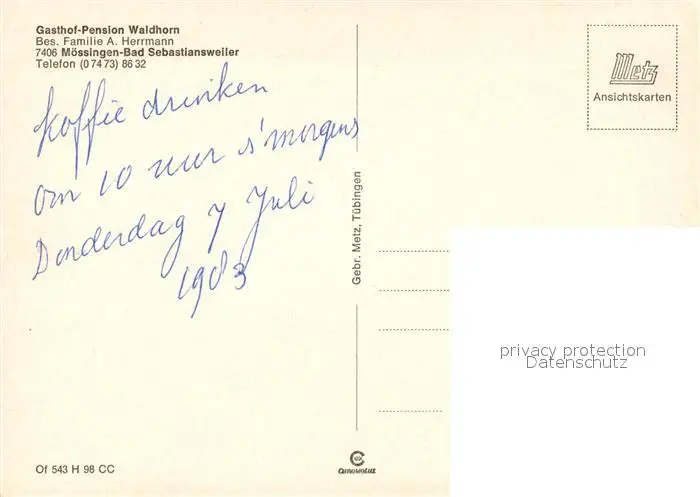 Gasthof-Pension Waldhorn
Bes. Familie A. Herrmann
7406 Mössingen-Bad Sebastiansweiler
Telefon (0 74 73) 86 32
koffie drinken
om 10 uur s'morgens
Donderdag 7 Juli
1983
Gebr. Metz, Tübingen
Metz
Ansichtskarten
privacy protection
Datenschutz
Of 543 H 98 CC
CHROMOLUX